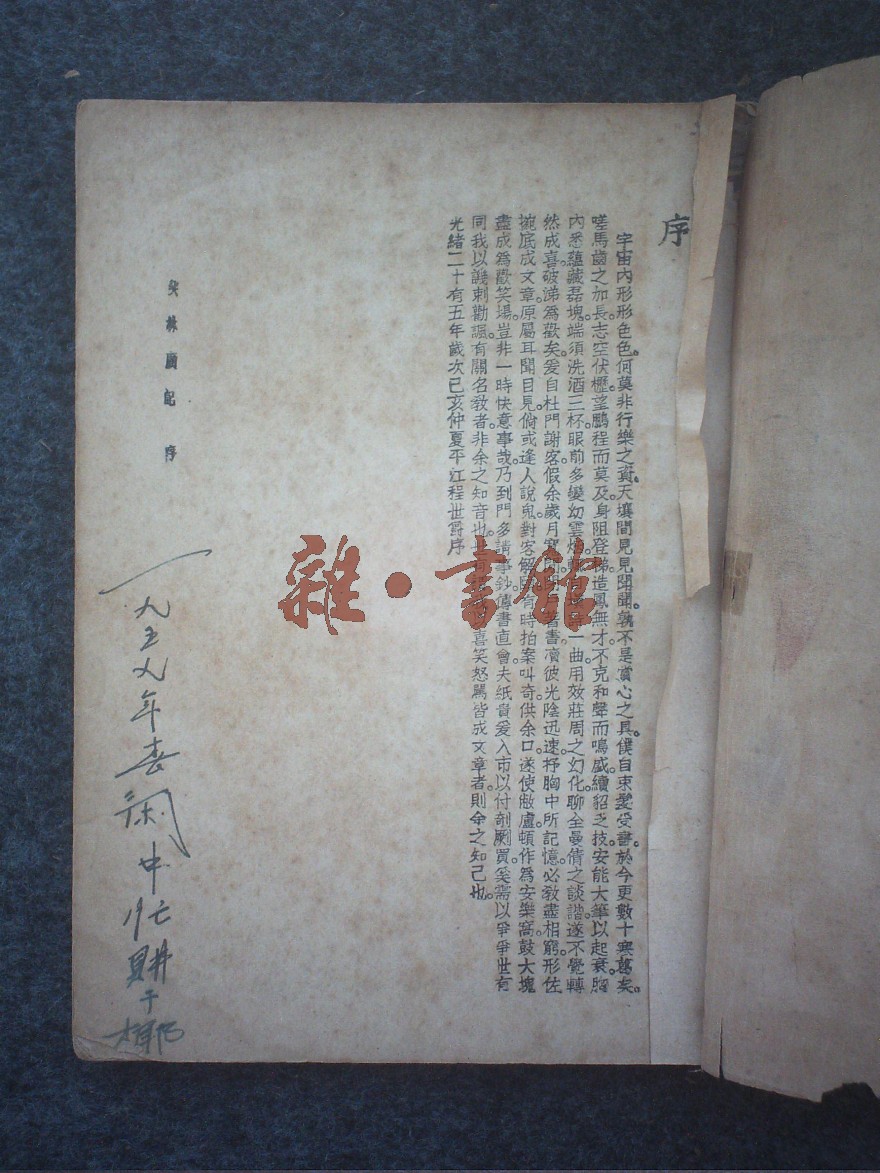 序
宇宙內形形色色。何莫非行樂之資。天壤間見見聞聞。孰不是賞心之具。僕自束髮受書。於今更數十寒葛矣。
嗟馬齒之加長。志空伏櫪。望鵬程而莫及。身阻登梯。造鳳無才。不克和聲而鳴盛。續貂乏技。安能大筆以起衰。胸
內悉蘊藏磊塊。端須洗酒三杯。眼前多變幻雲烟。一曲。用效莊周之幻化。聊全曼倩之談諧。遂不覺轉
然成喜。破涕為歡矣。爰自杜門謝客。假余歲月著書。濟彼光陰迅速。抒胸中所記憶。必教盡相窮形。佐
捥底成文章。原屬耳聞目見。倘或逢人說鬼。對客解時拍案叫奇。供余口。遂使敝廬頓作為安樂窩。鼓大塊
盡成為歡笑場。豈非一時快意事哉。乃到門多請事鈔傳。書直會夫紙貴。爰入市以付剞劂。買笑需以爭爭。世有
同我以譏刺勸諷。有關名教者。非余之知音也。喜笑怒罵皆成文章者。則余之知己也。
光緒二十有五年歲次已亥仲夏平江程世爵序
笑林廣記 序
一九五九年春 中